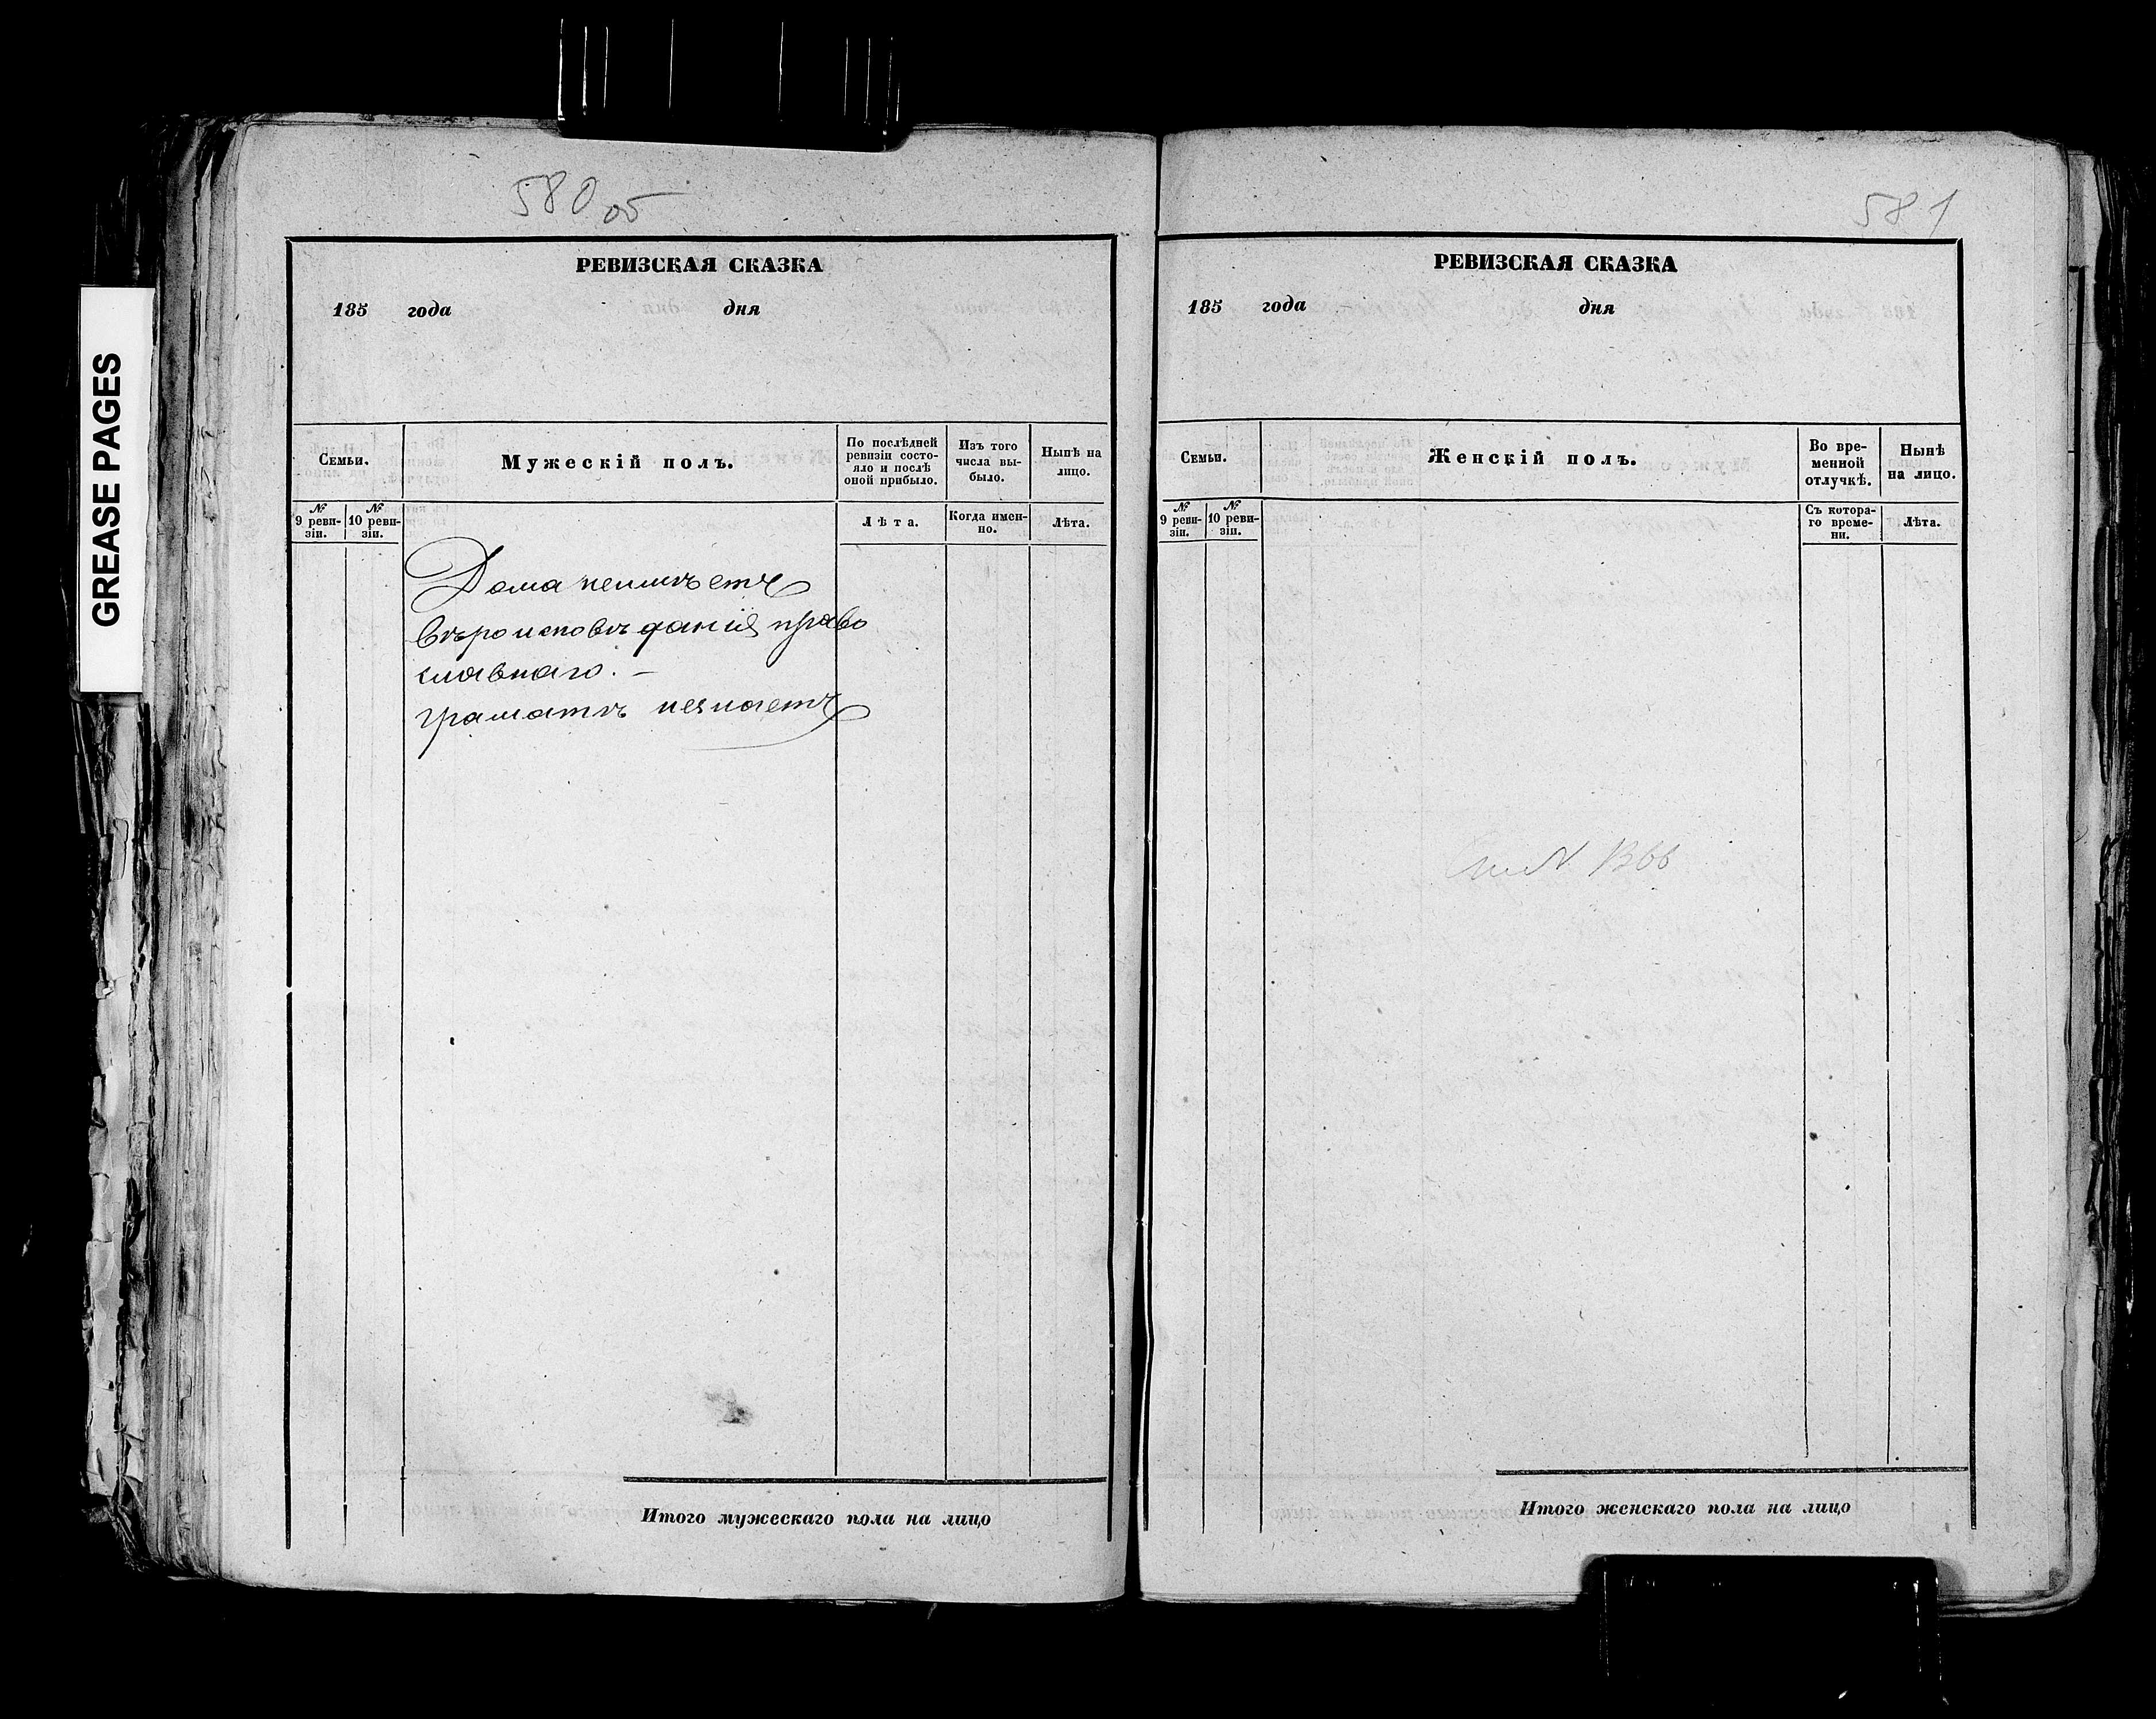 580 об
581
GREASE PAGES
РЕВИЗСКАЯ СКАЗКА
185 года дня
Семьи.
Мужескій полъ.
По послѣдней
ревизіи состо-
яло и послѣ
оной прибыло.
Изъ того
числа вы-
было.
Нынѣ на
лицо.
№
9 реви-
зіи.
№
10 реви-
зіи.
Лѣта.
Когда имен-
но.
Лѣта.
Дома неимѣетъ
Вѣроисповѣданія право
славнаго. –
грамотѣ незнаетъ
Итого мужескаго пола на лицо
РЕВИЗСКАЯ СКАЗКА
185 года дня
Семьи.
Женскій полъ.
Во вре-
менной
отлучкѣ.
Нынѣ
на лицо.
№
9 реви-
зіи.
№
10 реви-
зіи.
Съ котора-
го време-
ни.
Лѣта.
Итого женскаго пола на лицо